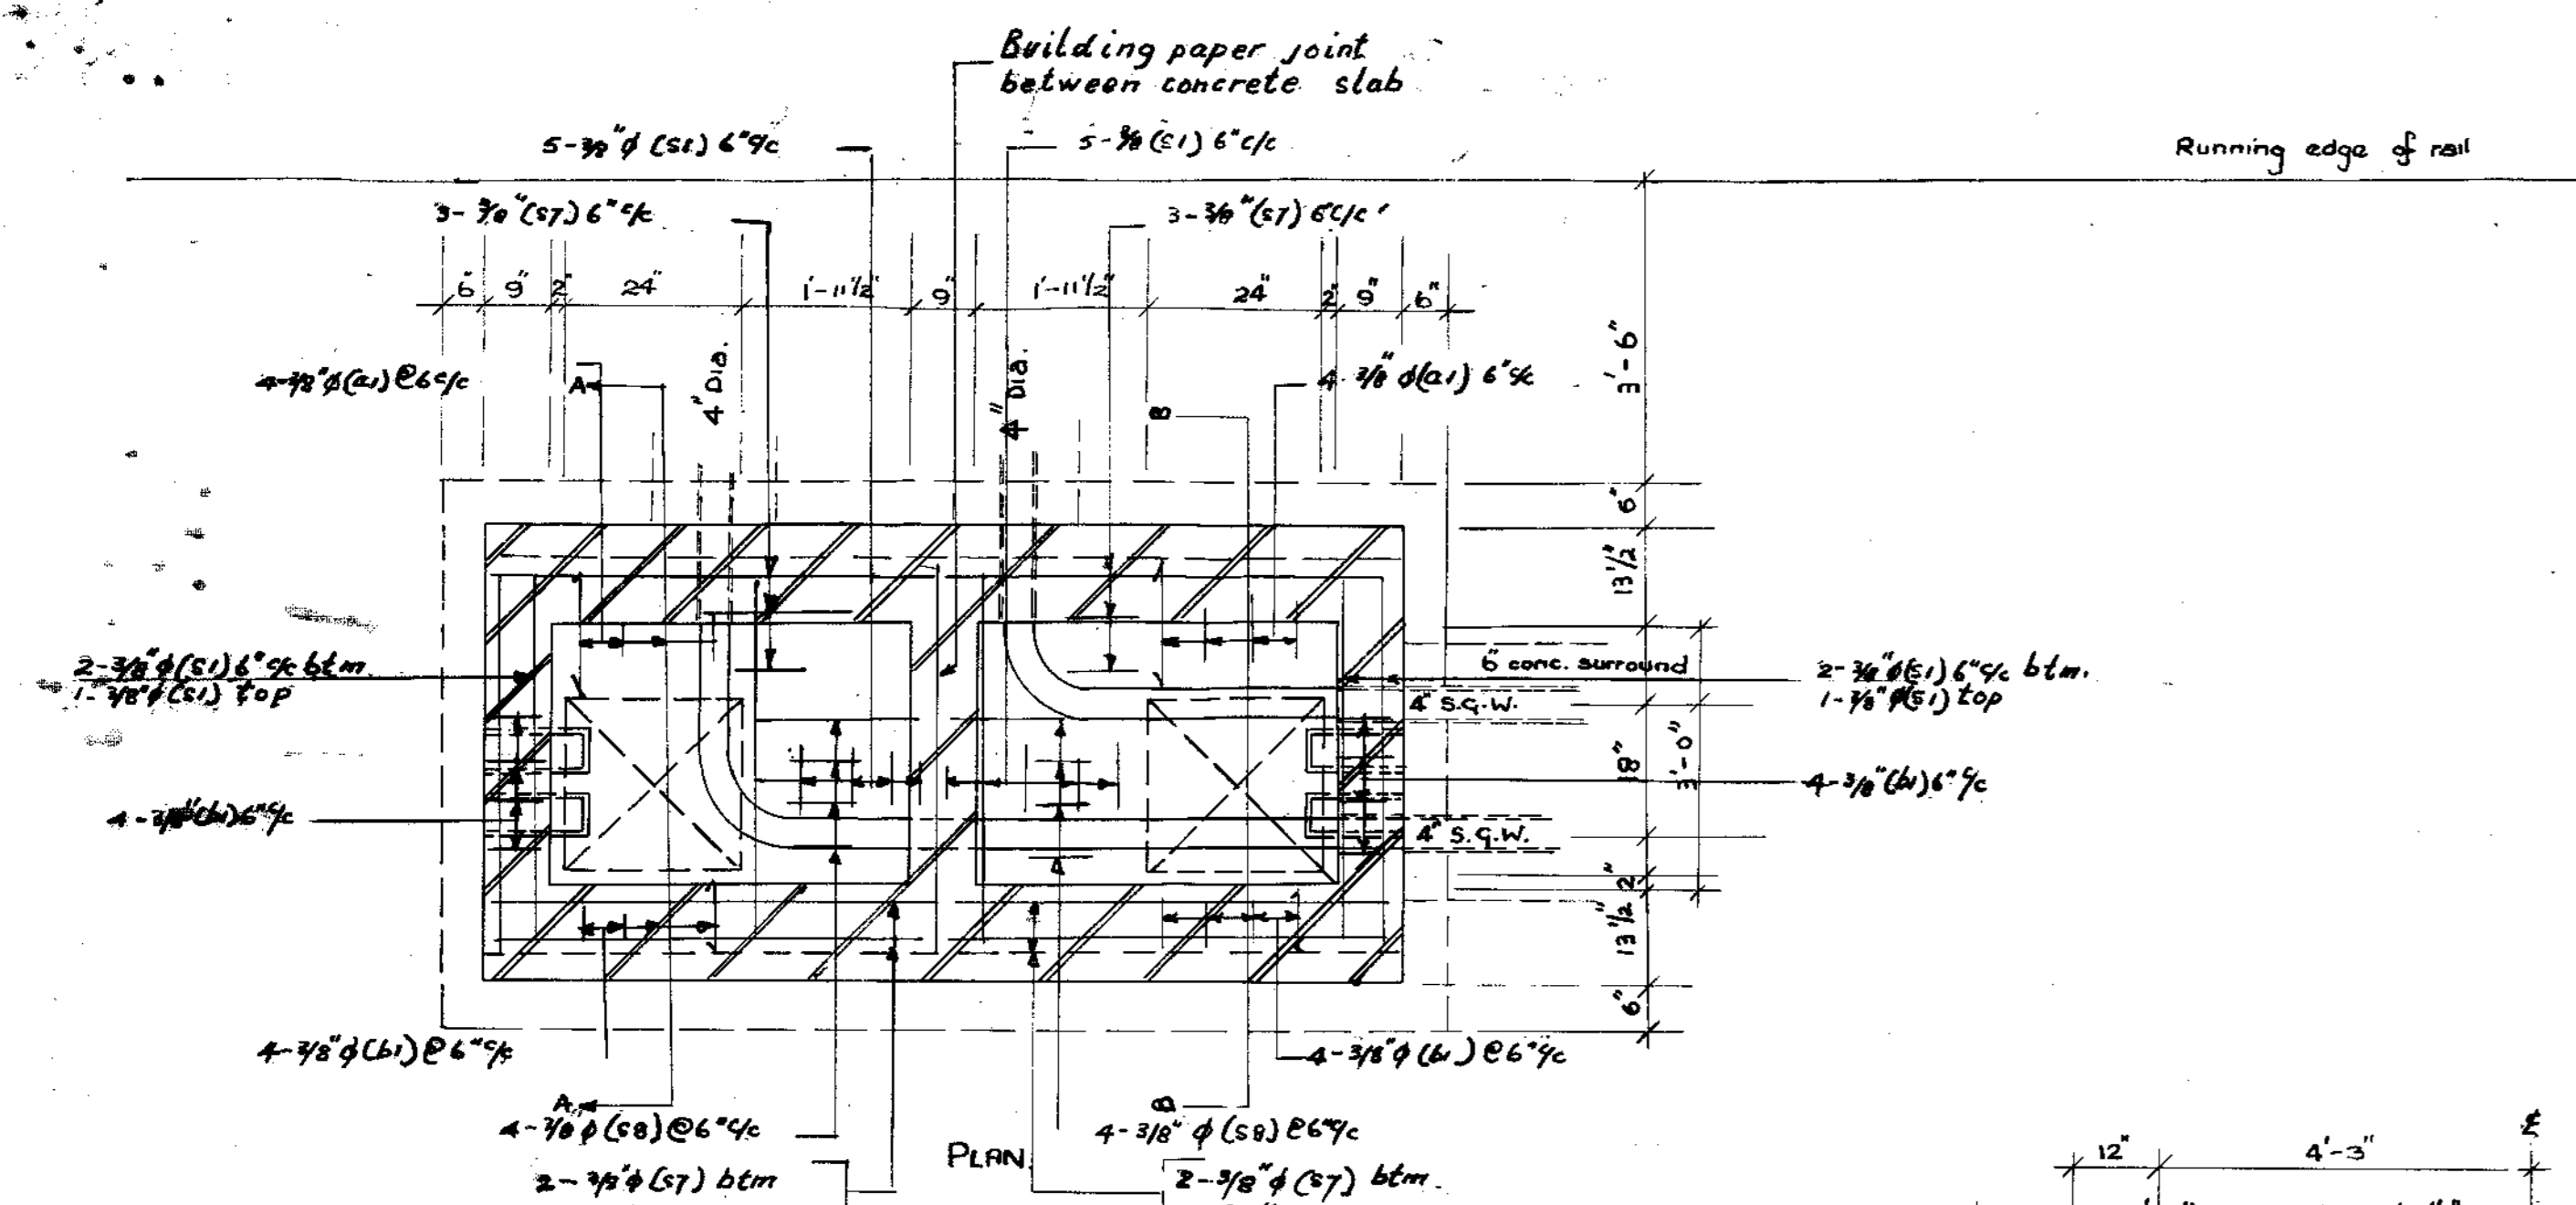 Building paper joint
between concrete slab
5-3/8"ϕ (s1) 6"c/c
5-3/8 (s1) 6"c/c
Running edge of rail
3-3/8"(s7) 6"c/c
3-3/8"(s7) 6"c/c
6" 9" 2" 24" 1'-11 1/2" 9" 1'-11 1/2" 24" 2" 9" 6"
3'-6"
4-3/8"ϕ(a1) @6c/c
A
4" Dia.
4" Dia.
B
4-3/8"ϕ(a1) 6"c/c
6"
13 1/2"
2-3/8"ϕ(s1) 6"c/c btm.
1-3/8"ϕ(s1) top
6" conc. surround
4" S.G.W.
2-3/8"ϕ(s1) 6"c/c btm.
1-3/8"ϕ(s1) top
18"
3'-0"
4-3/8"(b1) 6"c/c
4-3/8"(b1) 6"c/c
4" S.G.W.
2"
13 1/2"
6"
4-3/8"ϕ(b1) @ 6"c/c
4-3/8"ϕ(b1) @ 6"c/c
A
B
4-3/8ϕ(s8) @ 6"c/c
4-3/8"ϕ(s8) @ 6"c/c
PLAN
2-3/8"ϕ(s7) btm
2-3/8"ϕ(s7) btm.
12" 4'-3" ℄